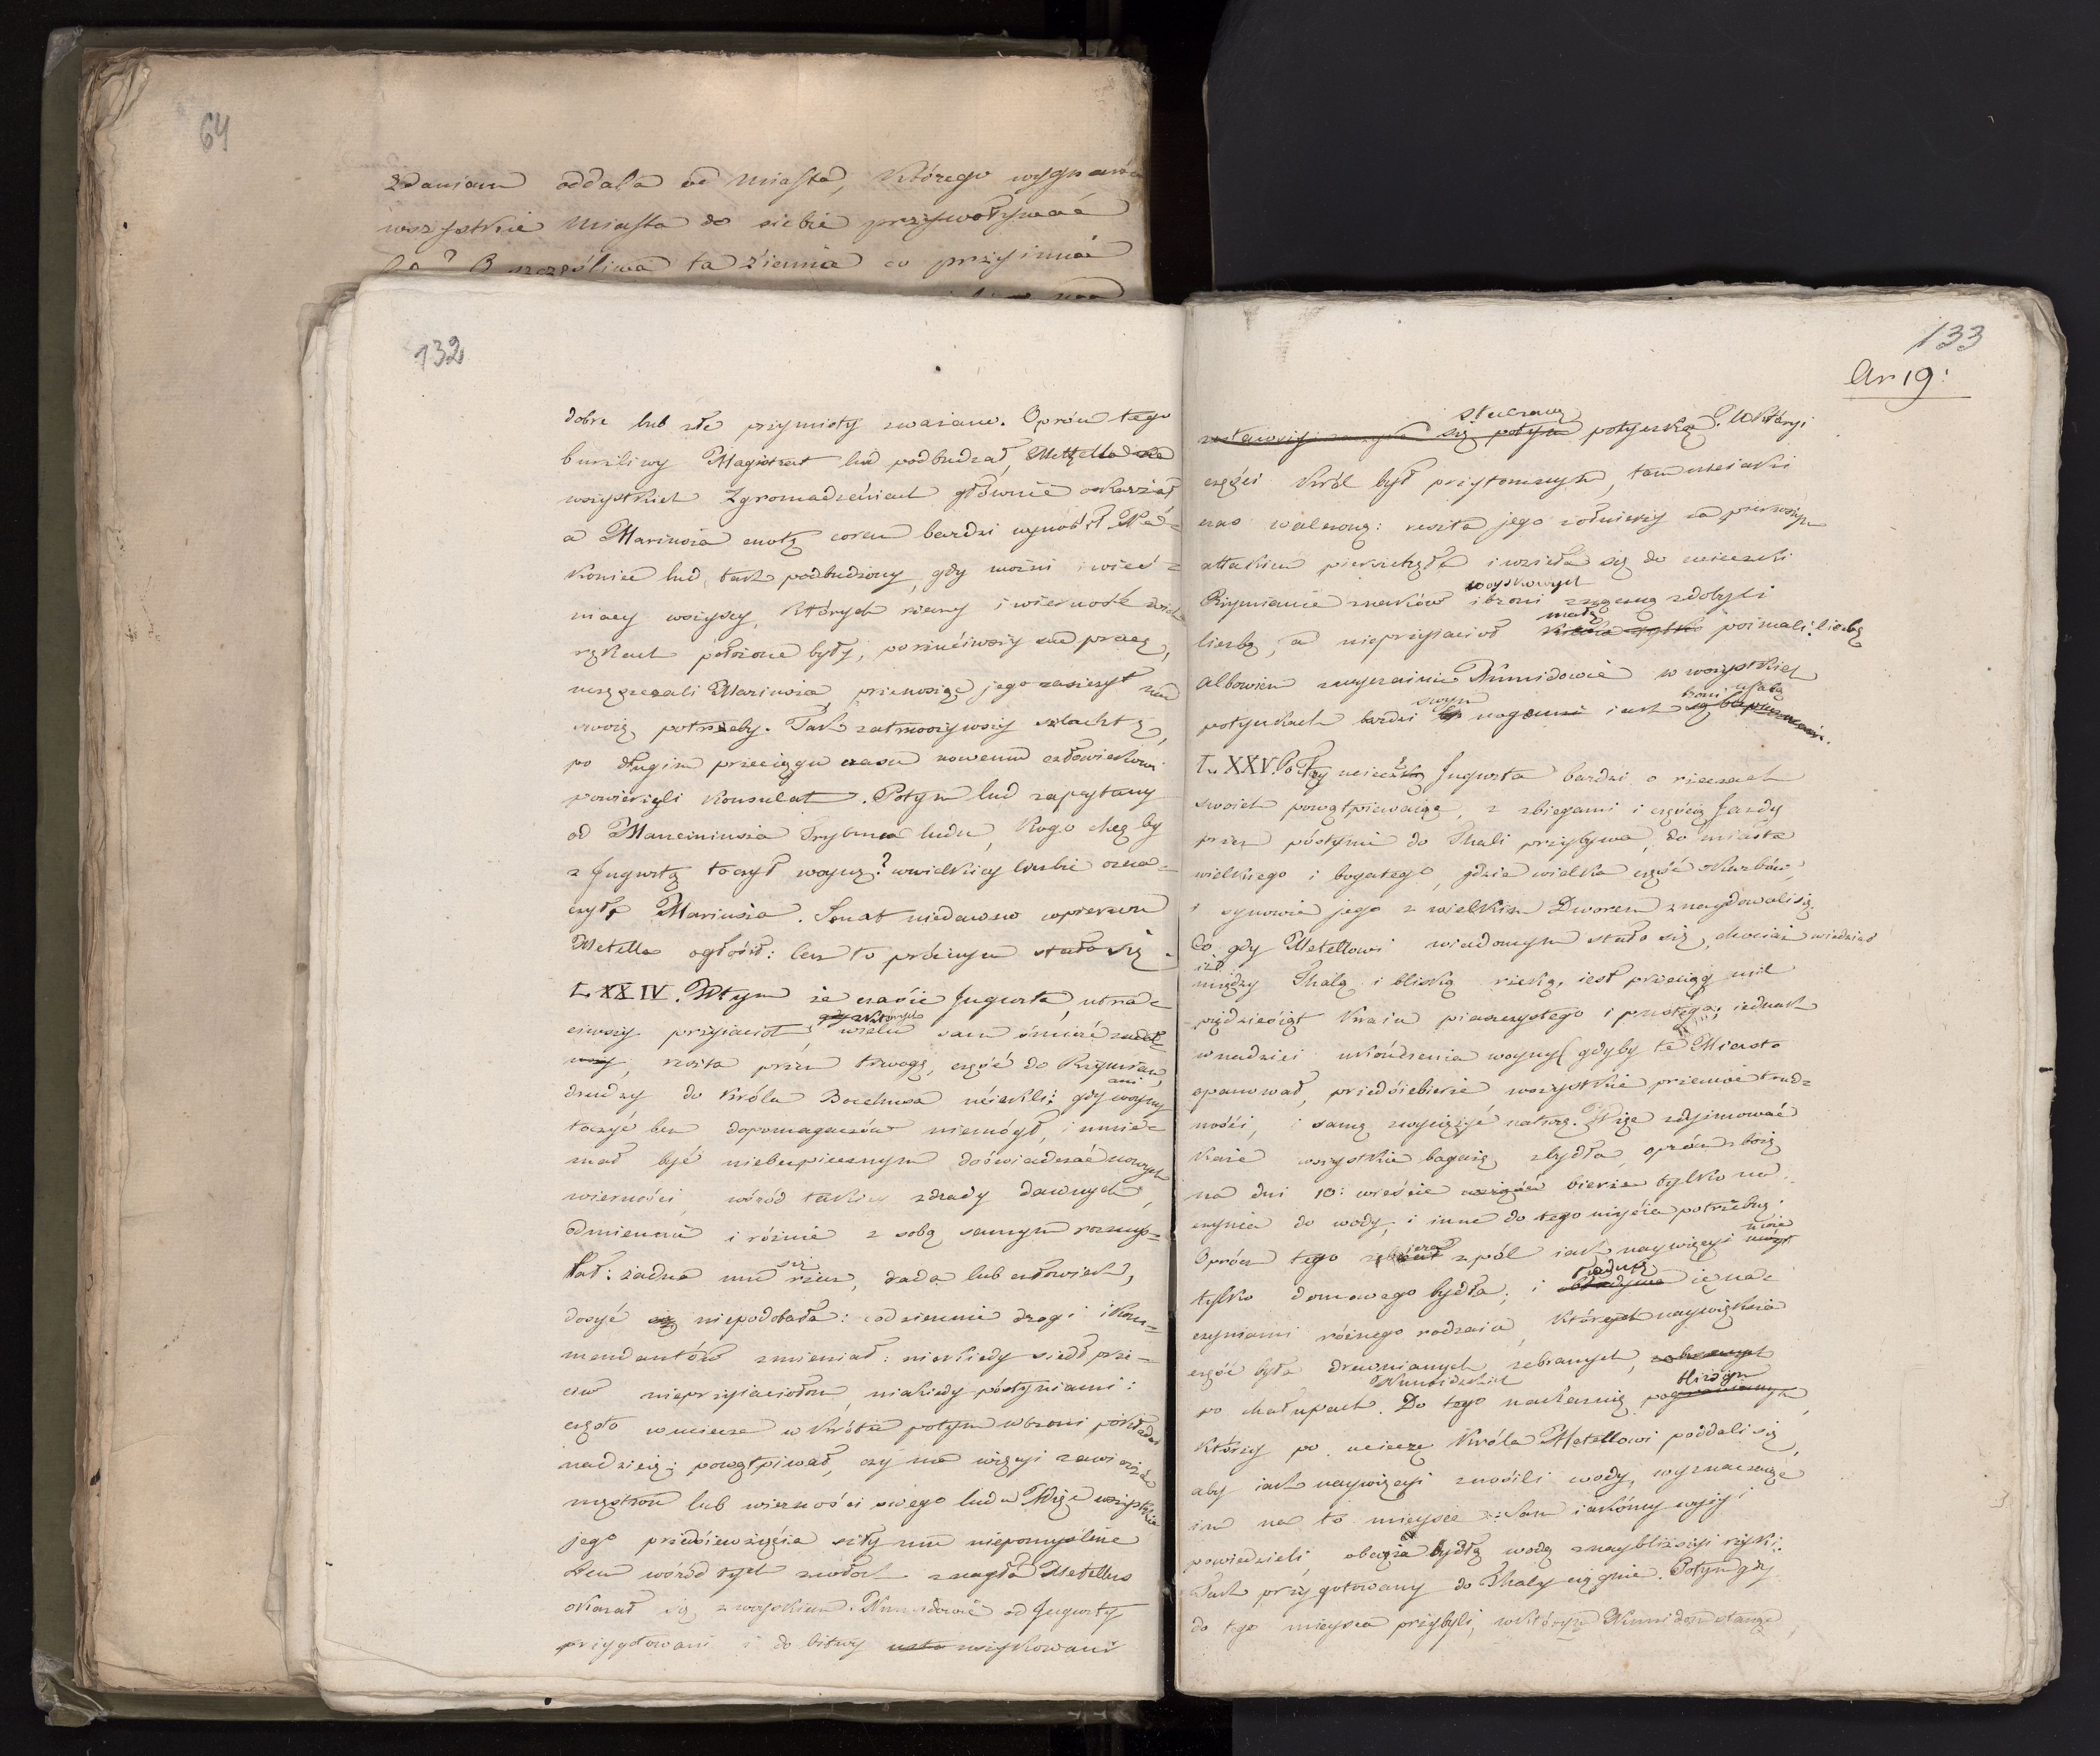 64
zdaniem oddala od Miasta, którego wygnańca
wszystkie Miasta do siebie przyswoływać
szczęśliwa ta ziemia co przyimie
132
dobre lub złe przymioty zważano. Oprócz tego
burzliwy Magistrat lud podbudzał, Metella na
wszystkich Zgromadzeniach głównie oskarżał
a Mariusza cnotę coraz bardzi wynosił. Na-
koniec lud tak podbudzony, gdy możni i wieś-
niacy wszyscy, których rzeczy i wierność w ich
rękach położone były, porzuciwszy swe pracę,
uczęszczali Mariusza, przenosząc jego zaszczyt nad
swoię potrzeby. Tak zatrwożywszy szlachtę,
po długim przeciągu czasu nowemu człowiekowi
powierzyli Konsulat. Potym lud zapytany
od Manciniusza Trybuna ludu, Kogo chcą by
z Jugurtą toczył woynę? w wielkiey liczbie ozna-
czyło Mariusza. Senat niedawno wprzeród
Metella ogłosił: lecz to próżnym stało się.
LXXIV. W tym że czasie Jugurta, utra-
ciwszy przyiaciół, z których wielu sam śmierć zadał
reszta przez trwogę, część do Rzymian,
drudzy do Króla Bocchusa uciekli: gdy ani woyny
toczyć bez dopomagaczów niemógł, i mnie-
mał być niebezpiecznym doświadczać nowych
wierności, wśród takiey zdrady dawnych,
odmiennie i różnie z sobą samym rozmyś-
lał: żadna mu się rzecz, rada lub człowiek,
dosyć się niepodobała: codziennie drogi i Kom-
mendantów zmieniał: niekiedy siedł prze-
ciw nieprzyiaciołom, niekiedy póstyniami:
często w ucieczce w krótce potym w broni pokładał
nadzieię; powątpiwał, czy ma więcyi zawierzać
męstwu lub wierności swego ludu. Więc wszystkie
jego przedsięwzięcia szły mu niepomyślnie
Lecz wśród tych zwłok znagła Metellus
okazał się z woyskiem. Numidowie od Jugurty
przygotowani i do bitwy uszykowani
133
Ar 19:
stoczono
się potym potyczkę. W któryi
części Król był przytomnym, tam nieiaki
czas walczono: reszta jego żołnierzy za pierwszym
attakiem pierzchnęła i wzięła się do ucieczki
woyskowych
Rzymianie znaków i broni znaczną zdobyli
małą
liczbę, a nieprzyiaciół poimali: liczbę
Albowiem zwyczainie Numidowie w wszystkich
swym broni ufaią
potyczkach bardzi nogom iak
LXXV. Po tey ucieczce Jugurta bardzi o rzeczach
swoich powątpiewaiąc, z zbiegami i częścią Jazdy
przez póstynie do Thali przybywa, do miasta
wielkiego i bogatego, gdzie wielka część skarbów,
i synowie jego z wielkim Dworem znaydowali się.
Co gdy Metellowi wiadomym stało się, chociaż wiedział
iż
między Thalą i bliską rzeką, iest przeciąg mil
pięćdziesiąt Kraiu piaszczystego i pustego; iednak
w nadziei ukończenia woyny (gdyby te Miasto
opanował, przedsiębierze wszystkie przemoc trud-
ności, i samą zwyciężyć naturę. Więc zdyimować
każe wszystkie bagaże z bydła, oprócz zboża
na dni 10: wreście bierze tylko na-
czynia do wody, i inne do tego użycia potrzebne.
Oprócz tego zbiera z pól iak naywięcyi może
tylko domowego bydła; i ie na-
czyniami różnego rodzaia, których naywiększa
część była drewnianych, zebranych,
Numidzkich bliższym
po chałupach. Do tego nakazuie
którzy po ucieczce Króla Metellowi poddali się,
aby iak naywięcyi znosili wody, wyznaczaiąc
im na to mieysce: Sam iakośmy wyżyi
powiedzieli, obciąża bydło wodą z naybliższyi rzyki:
Tak przygotowany do Thaly ciągnie. Potym gdy
do tego mieysca przybyli, w którym Numidom stanąć